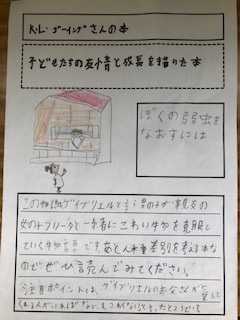 K.L.ゴーイングさんの本
子どもたちの友情と成長を描いた本
ぼくの弱虫を
なおすには
この物語はゲイブリエルと言う男の子が親友の
女の子フリータと一緒にこわい物を克服し
ていく物語です。あと人種差別を考える本な
のでぜひ読んでみてください。
注目ポイントは、ゲイブリエルのお父さんが愛して
くれる人がいればなにもこわくない